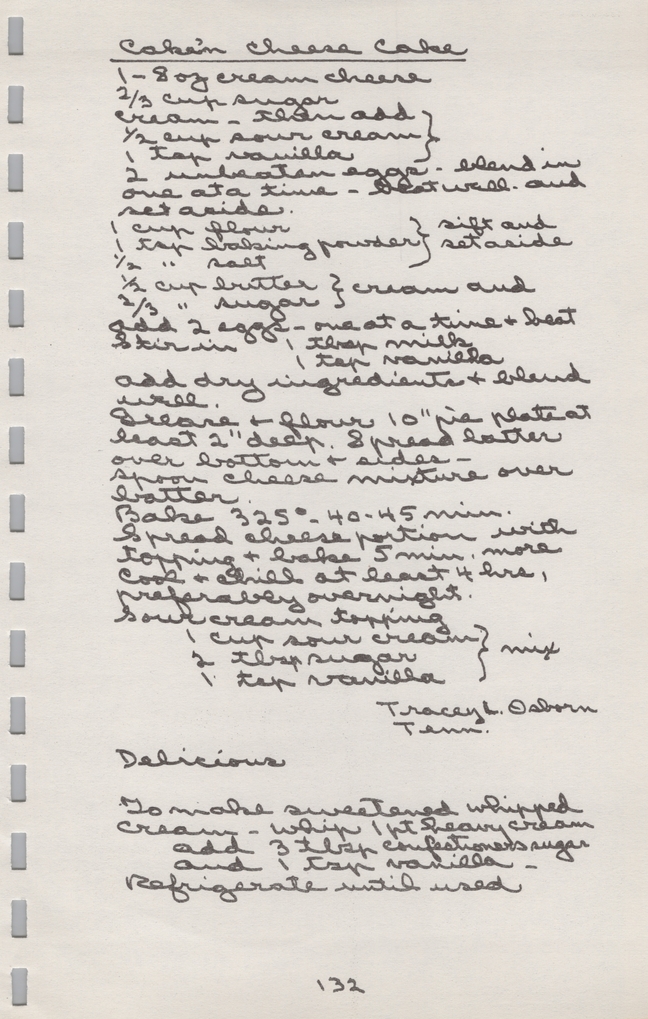 Cake'n Cheese Cake
1 - 8 oz cream cheese
2/3 cup sugar
cream - then add
1/2 cup sour cream
1 tsp vanilla
2 unbeaten eggs - blend in
one at a time - beat well. and
set aside.
1 cup flour } sift and
1 tsp baking powder } set aside
1/2 " salt
1/2 cup butter } cream and
2/3 " sugar }
add 2 eggs - one at a time + beat
Stir in 1 tbsp milk
1 tsp vanilla
add dry ingredients + blend
well.
Grease + flour 10" pie plate at
least 2" deep. Spread batter
over bottom + sides -
spoon cheese mixture over
batter.
Bake 325° - 40-45 min.
Spread cheese portion with
topping + bake 5 min. more
Cool + chill at least 4 hrs,
preferably overnight.
Sour cream topping
1 cup sour cream }
2 tbsp sugar } mix
1 tsp vanilla
Tracey L. Osborn
Tenn.
Delicious
To make sweetened whipped
cream - whip 1 pt heavy cream
add 3 tbsp confectioners sugar
and 1 tsp vanilla -
Refrigerate until used
132